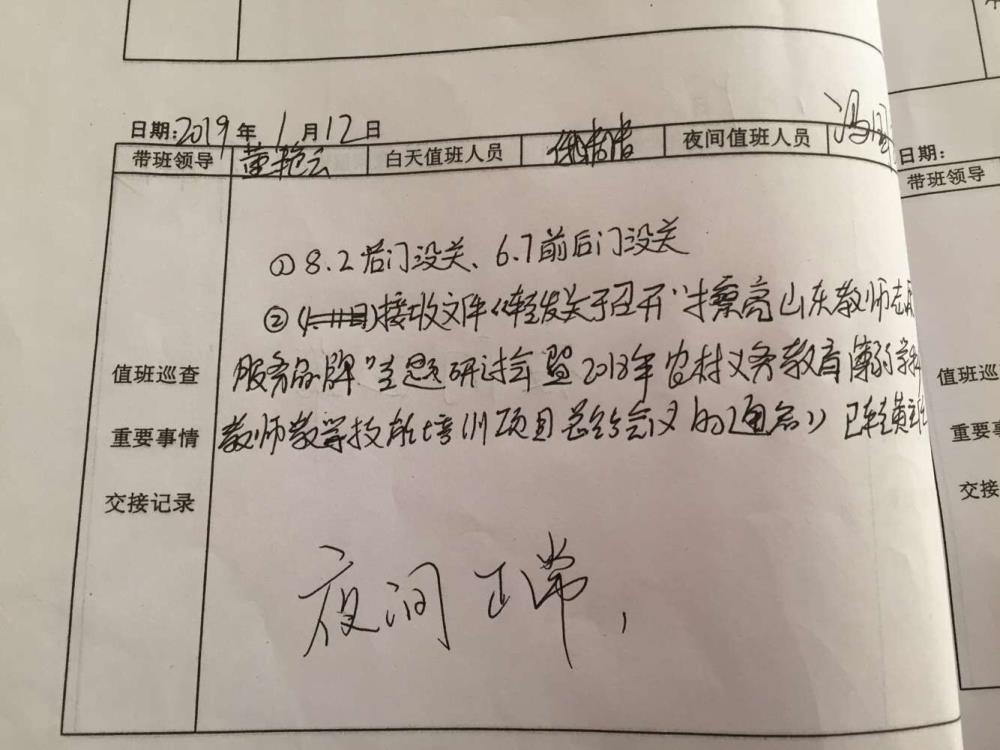 日期:2019年1月12日
带班领导 黄艳云 白天值班人员 夜间值班人员 冯
①8.2后门没关、6.7前后门没关
②接收文件《转发关于召开"擦亮山东教师志愿
值班巡查 服务品牌"主题研讨会暨2018年农村义务教育薄弱学科
重要事情 教师教学技能培训项目总结会议的通知》已转黄主任
交接记录
夜间正常,
日期:
带班领导
值班巡
重要事
交接